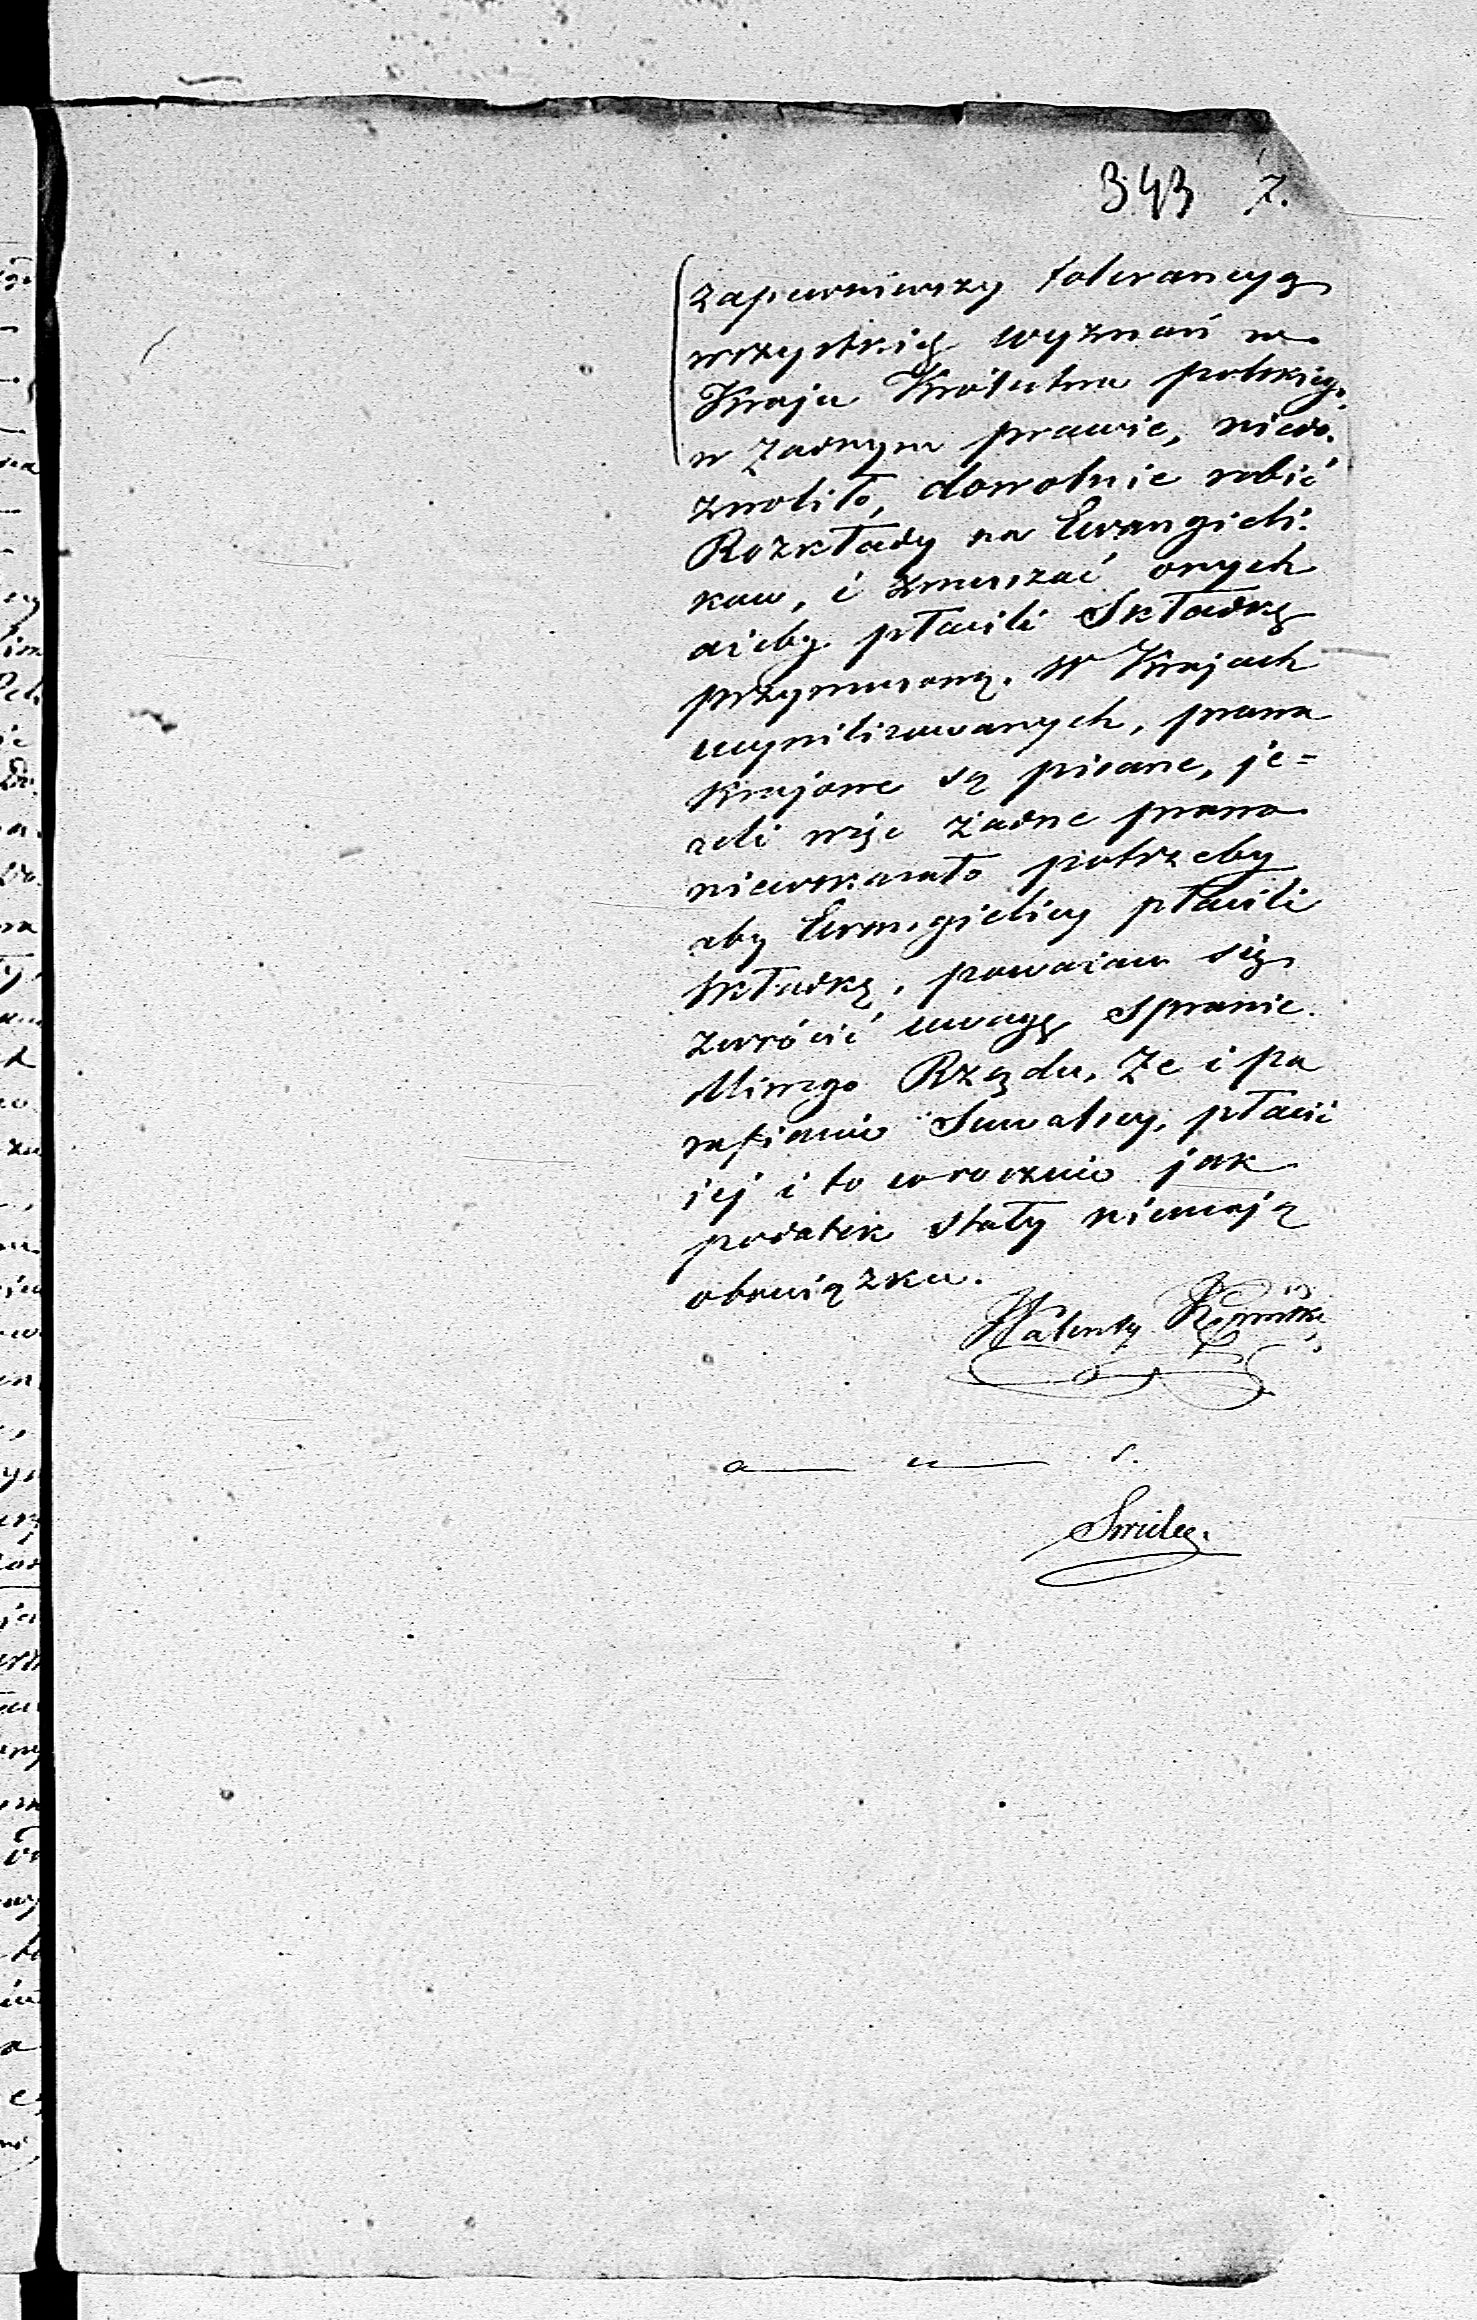 343 7.
zapewniwszy tolerancyą
wszystkię wyznań w
Kraju Królestwa polskieg.
w żadnym prawie, niedo.
zwoliło, dowolnie robić
Rozkłady na Ewangieli.
kow, i zmuszać onych
ażeby płacili Składkę
przymusoną. W Krajach
ucywilizowanych, prawa
krajowe są pisane, je=
żeli więc żadne prawo
niewskazało potrzeby
aby Ewangielicy płacili
składkę, poważam się
zwrócić uwagę Sprawie.
dliwego Rządu, że i pa
rafianie Suwalscy, płacić
jej i to corocznie jak
podatek stały niemają
obowiązku.
Walenty
a u s.